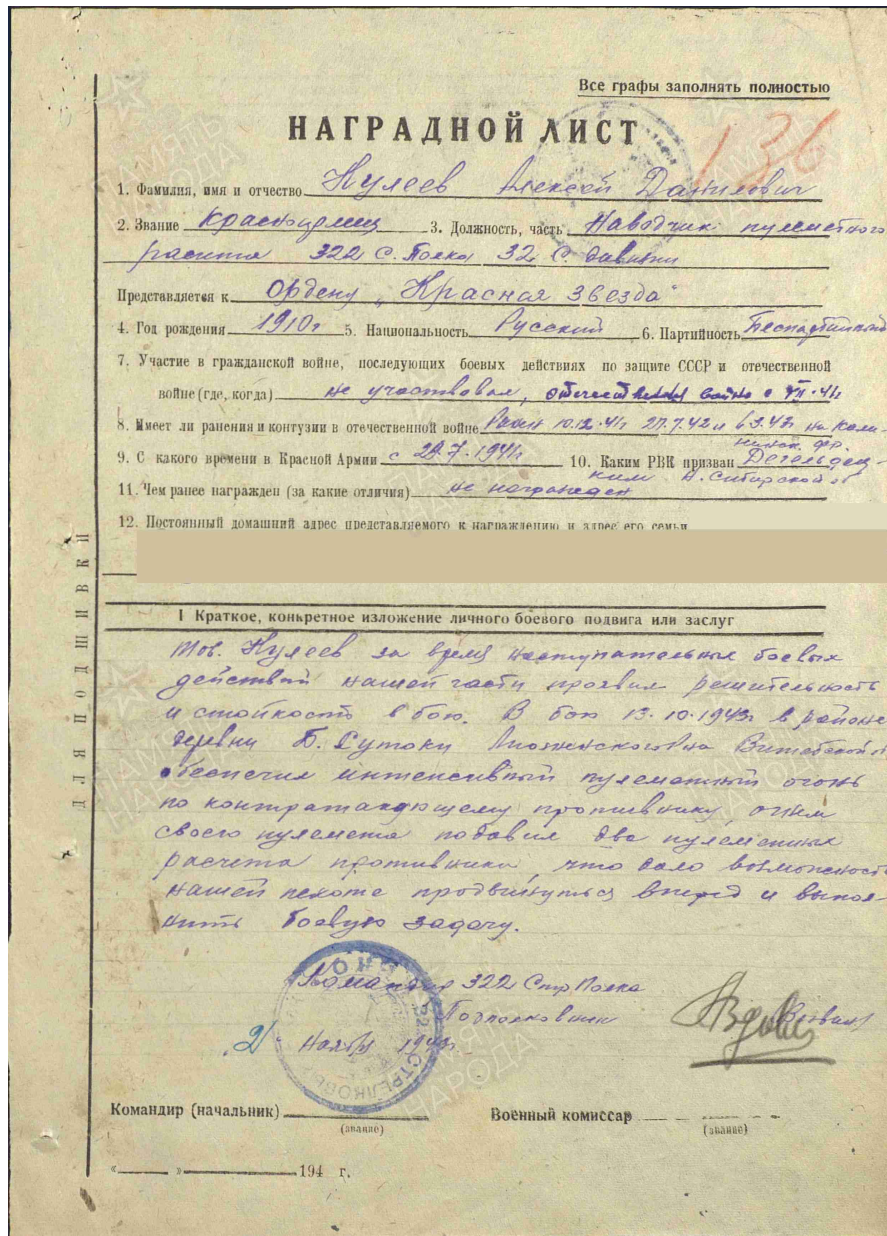 Все графы заполнять полностью
НАГРАДНОЙ ЛИСТ
136
1. Фамилия, имя и отчество Кулеев Алексей Данилович
2. Звание Красноармеец 3. Должность, часть Наводчик пулеметного
расчета 322 С. Полка 32 С. дивизии
Представляется к Ордену „Красная Звезда"
4. Год рождения 1910г 5. Национальность Русский 6. Партийность Беспартийный
7. Участие в гражданской войне, последующих боевых действиях по защите СССР и отечественной
войне (где, когда) не участвовал, отечественная война с VII-41г
8. Имеет ли ранения и контузии в отечественной войне Ранен 10.12.41г 27.7.42 и 6.3.43 на Кали-
нинск. фр.
9. С какого времени в Красной Армии с 1941г 10. Каким РВК призван
ким Н. Сибирской об
11. Чем ранее награжден (за какие отличия) не награжден
12. Постоянный домашний адрес представляемого к награждению и адрес его семьи
ДЛЯ ПОДШИВКИ
I Краткое, конкретное изложение личного боевого подвига или заслуг
Тов. Кулеев за время наступательных боевых
действий нашей части проявил решительность
и стойкость в бою. В бою 13.10.1943г в районе
деревни Б. Сутоки Витебской
обеспечил интенсивный пулеметный огонь
по контратакующему противнику, огнем
своего пулемета подавил два пулеметных
расчета противника, что дало возможность
нашей пехоте продвинуться вперед и выпол-
нить боевую задачу.
Командир 322 Стр Полка
Подполковник
„2" Ноября 1943г
Командир (начальник) Военный комиссар
(звание) (звание)
« » 194 г.
ПАМЯТЬ НАРОДА